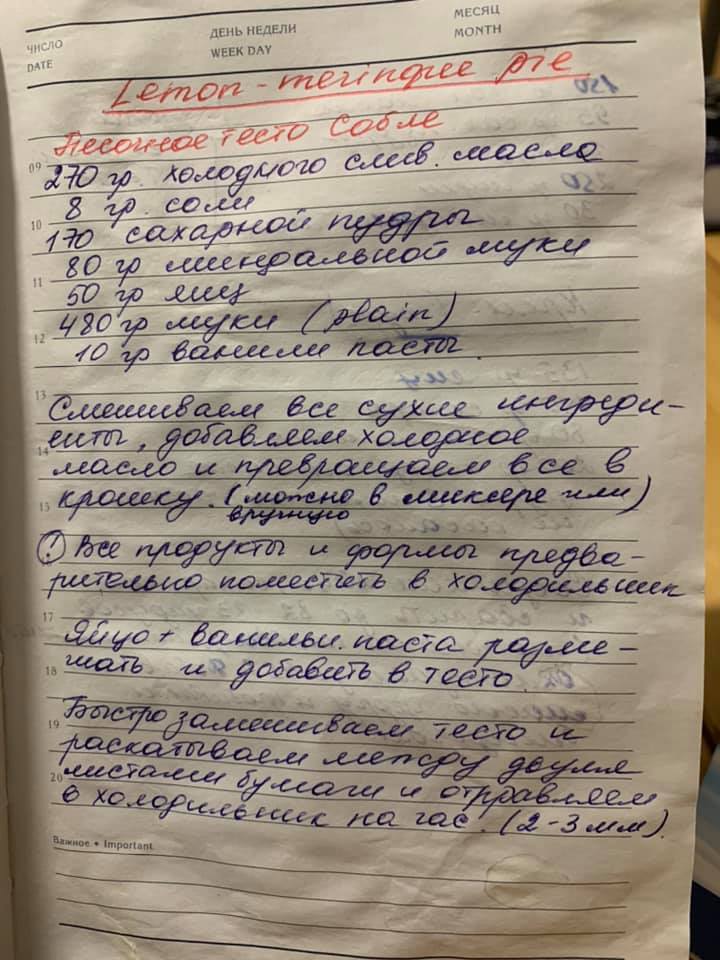 ЧИСЛО
DATE
ДЕНЬ НЕДЕЛИ
WEEK DAY
МЕСЯЦ
MONTH
Lemon-meringue pie
Песочное тесто Собле
09
270 гр. холодного слив. масла
8 гр. соли
10
170 сахарной пудры
80 гр миндальной муки
11
50 гр яиц
480 гр муки (plain)
12
10 гр ванили пасты.
13
Смешиваем все сухие ингреди-
енты, добавляем холодное
14
масло и превращаем все в
крошку. (можно в миксере или)
15
вручную
! Все продукты и формы предва-
рительно поместить в холодильник
17
Яйцо + ванильн. паста разме-
шать и добавить в тесто.
18
Быстро замешиваем тесто и
19
раскатываем между двумя
листами бумаги и отправляем
20
в холодильник на час. (2-3 мм).
Важное • Important